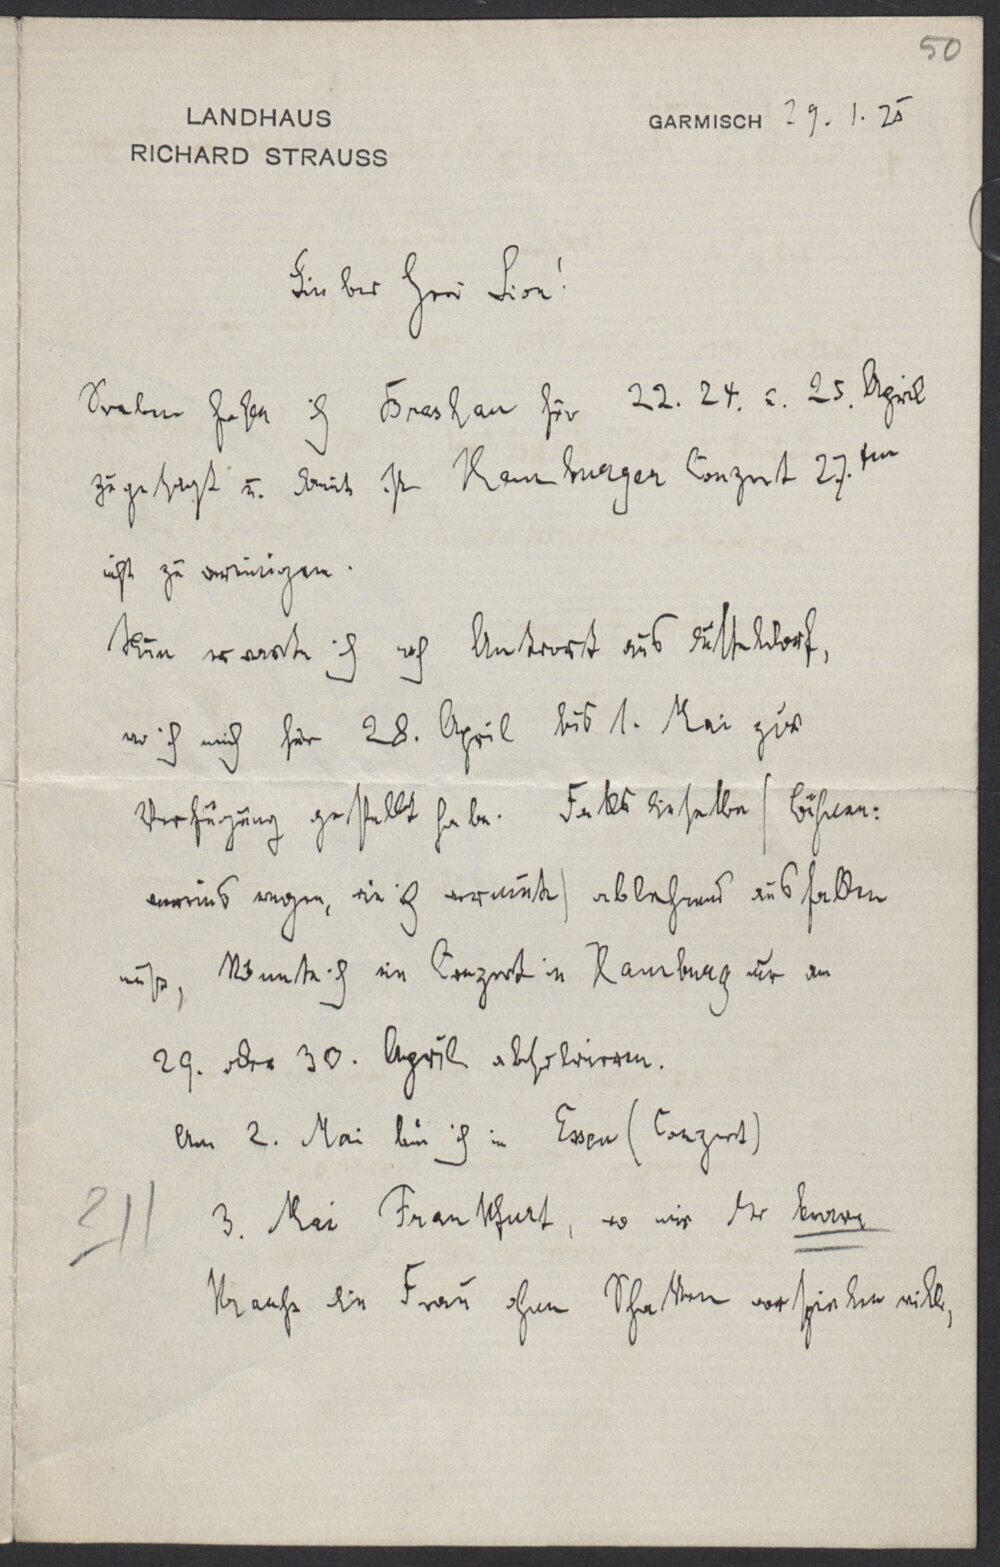 50
LANDHAUS
RICHARD STRAUSS
GARMISCH 29. 1. 25
Lieber Herr Lion!
Soeben habe ich Breslau für 22. 24. u. 25. April
zugesagt u. damit ist Hamburger Conzert 27.ten
nicht zu vereinigen.
Nun erwarte ich noch Antwort aus Düsseldorf,
wo ich mich für 28. April bis 1. Mai zur
Verfügung gestellt habe. Falls dieselbe (Bühnen:
vereins wegen, wie ich vermute) ablehnend ausfallen
muß, könnte ich ein Conzert in Hamburg nur am
29. oder 30. April absolvieren.
Am 2. Mai bin ich in Essen (Conzert)
3. Mai Frankfurt, wo mir der brave
Krauss die Frau ohne Schatten vorspielen will,